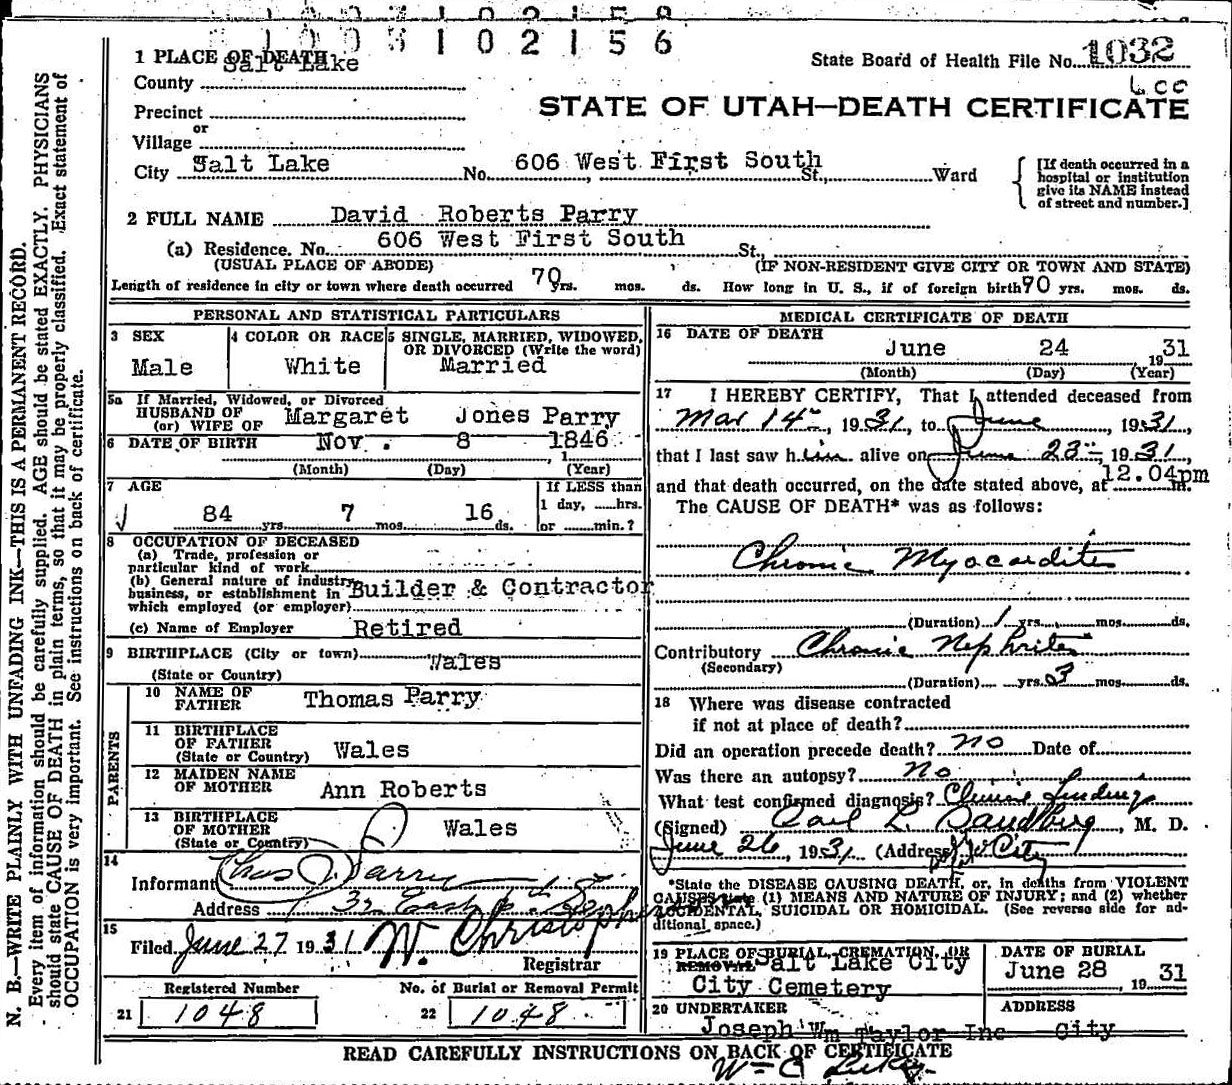 1003102156
1 PLACE OF DEATH
State Board of Health File No. 1032
County Salt Lake
Precinct
or
Village
STATE OF UTAH—DEATH CERTIFICATE
City Salt Lake No. 606 West First South St., Ward
[If death occurred in a
hospital or institution
give its NAME instead
of street and number.]
2 FULL NAME David Roberts Parry
(a) Residence. No. 606 West First South St.,
(USUAL PLACE OF ABODE) (IF NON-RESIDENT GIVE CITY OR TOWN AND STATE)
Length of residence in city or town where death occurred 70 yrs. mos. ds. How long in U. S., if of foreign birth 70 yrs. mos. ds.
N. B.—WRITE PLAINLY WITH UNFADING INK—THIS IS A PERMANENT RECORD.
Every item of information should be carefully supplied. AGE should be stated EXACTLY. PHYSICIANS
should state CAUSE OF DEATH in plain terms, so that it may be properly classified. Exact statement of
OCCUPATION is very important. See instructions on back of certificate.
PERSONAL AND STATISTICAL PARTICULARS
3 SEX
Male
4 COLOR OR RACE
White
5 SINGLE, MARRIED, WIDOWED,
OR DIVORCED (Write the word)
Married
5a If Married, Widowed, or Divorced
HUSBAND OF
(or) WIFE OF Margaret Jones Parry
6 DATE OF BIRTH Nov. 8 1846
(Month) (Day) (Year)
7 AGE
84 yrs. 7 mos. 16 ds.
If LESS than
1 day, hrs.
or min.?
8 OCCUPATION OF DECEASED
(a) Trade, profession or
particular kind of work
(b) General nature of industry,
business, or establishment in
which employed (or employer) Builder & Contractor
(c) Name of Employer Retired
9 BIRTHPLACE (City or town) Wales
(State or Country)
PARENTS
10 NAME OF
FATHER Thomas Parry
11 BIRTHPLACE
OF FATHER
(State or Country) Wales
12 MAIDEN NAME
OF MOTHER Ann Roberts
13 BIRTHPLACE
OF MOTHER
(State or Country) Wales
14
Informant Parry
Address 32 East
15
Filed June 27 1931 W. Christoph
Registrar
Registered Number
21 1048
No. of Burial or Removal Permit
22 1048
MEDICAL CERTIFICATE OF DEATH
16 DATE OF DEATH
June 24 1931
(Month) (Day) (Year)
17 I HEREBY CERTIFY, That I attended deceased from
Mar 14, 1931, to June, 1931,
that I last saw him alive on June 23, 1931,
and that death occurred, on the date stated above, at 12.04pm m.
The CAUSE OF DEATH* was as follows:
Chronic Myocarditis
(Duration) 1 yrs. mos. ds.
Contributory Chronic Nephritis
(Secondary)
(Duration) yrs. 3 mos. ds.
18 Where was disease contracted
if not at place of death?
Did an operation precede death? no Date of
Was there an autopsy? no
What test confirmed diagnosis? Clinical Findings
(Signed) Carl L. Sandberg, M. D.
June 26, 1931 (Address) City
*State the DISEASE CAUSING DEATH, or, in deaths from VIOLENT
CAUSES state (1) MEANS AND NATURE OF INJURY; and (2) whether
ACCIDENTAL, SUICIDAL OR HOMICIDAL. (See reverse side for ad-
ditional space.)
19 PLACE OF BURIAL, CREMATION, OR
REMOVAL Salt Lake City
City Cemetery
DATE OF BURIAL
June 28, 1931
20 UNDERTAKER
Joseph Wm Taylor Inc
ADDRESS
City
READ CAREFULLY INSTRUCTIONS ON BACK OF CERTIFICATE